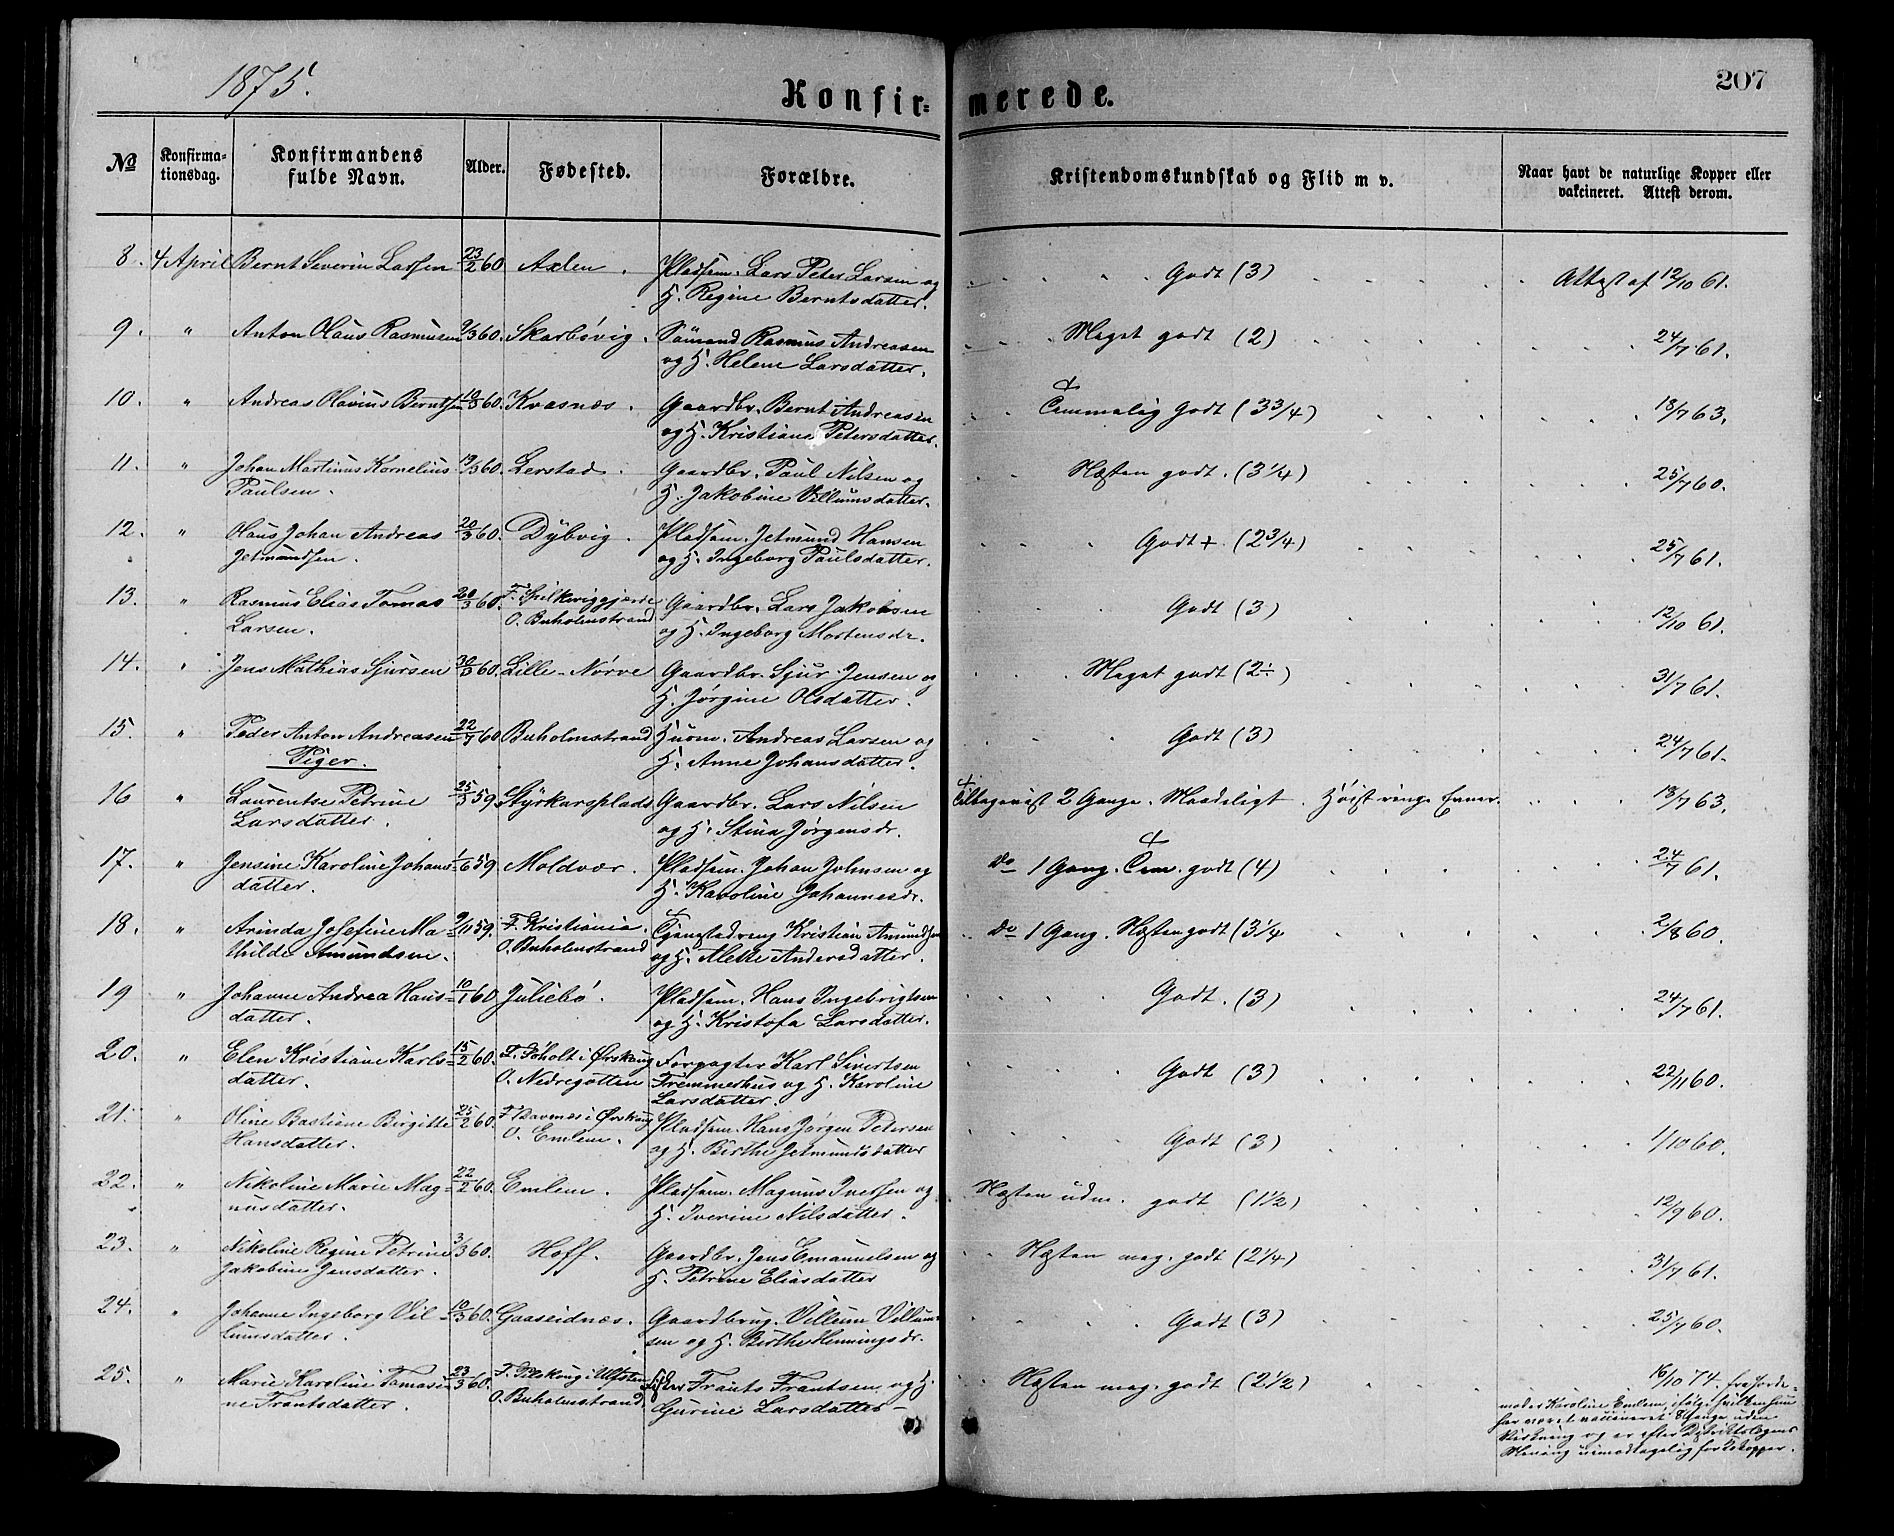 1875.
Konfir=merede.
207
No
Konfirma-
tionsdag.
Konfirmandens
fulde Navn.
Alder.
Fødested.
Forældre.
Kristendomskundskab og Flid m v.
Naar havt de naturlige Kopper eller
vakcineret. Attest derom.
8. 4 April Bernt Severin Larsen 23/2 60 Axlen. Pladsm. Lars Peter Larsen og Godt (3) Attest af 12/10 61.
H. Regine Berntsdatter.
9. " Anton Olaus Rasmusen 9/3 60. Skarbøvig. Sømand Rasmus Andreasen Meget godt (2) 24/7 61.
og H. Helene Larsdatter.
10. " Andreas Olavius Berntsen 10/3 60. Kvasnæs. Gaardbr. Bernt Andreasen Temmelig Godt (3 3/4) 18/7 63.
og H. Kristiane Petersdatter.
11. " Johan Martinus Kornelius 19/3 60. Lerstad. Gaardbr. Paul Nilsen og Næsten godt. (3 1/4) 25/7 60.
Paulsen. H. Jakobine Villumsdatter.
12. " Olaus Johan Andreas 20/3 60. Dybvig. Pladsm. Jetmund Hansen Godt +. (2 3/4) 25/7 61.
Jetmundsen. og H. Ingeborg Paulsdatter.
13. " Rasmus Elias Tomas 20/3 60. F. Spilkeviggjerde Gaardbr. Lars Jakobsen Godt (3) 12/10 61.
Larsen. O. Buholmstrand og H. Ingeborg Mortensdr.
14. " Jens Mathias Sjursen 30/3 60. Lille-Nørve Gaardbr. Sjur Jensen og Meget godt (2÷) 31/7 61.
H. Jørgine Olsdatter.
15. " Peder Anton Andreasen 22/7 60 Buholmstrand Huusm. Andreas Larsen og Godt (3) 24/7 61.
Piger. H. Anne Johansdatter.
16 " Laurentse Petrine 25/3 59. Styrkarsplads Gaardbr. Lars Nilsen Tilbagevist 2 Gange. Maadeligt. Høist ringe Evner. 18/7 63.
Larsdatter. og H. Stina Jørgensdr.
17. " Jensine Karoline Johans= 1/6 59 Moldvær. Pladsm. Johan Johnsen og do 1 Gang. Tem. godt (4) 24/7 61.
datter. H. Karoline Johannesdr.
18. " Arinda Josefine Ma= 9/11 59. F. Kristiania. Tjenestedreng Kristian Amundsen do 1 Gang. Næsten godt (3 1/4 2/8 60.
thilde Amundsen. O. Buholmstrand og H. Mette Andersdatter.
19 " Johanne Andrea Hans= 10/1 60 Juliebø. Pladsm. Hans Ingebrigtsen Godt. (3) 24/7 61.
datter. og H. Kristofa Larsdatter.
20. " Elen Kristiane Karls= 15/2 60. F. Søholt i Ørskoug Forpagter Karl Sivertsen Godt (3) 22/11 60.
datter. O. Nedregotten Fremmerhus og H. Karoline
Larsdatter.
21. " Oline Bastiane Birgitte 25/2 60. F. Bavnæs i Ørskoug Pladsm. Hans Jørgen Petersen Godt (3) 1/10 60.
Hansdatter. O. Emlem. og H. Birthe Jetmundsdatter
22. " Nikoline Marie Mag= 22/2 60. Emlem. Pladsm. Magnus Iversen og Næsten udm. godt (1 1/2) 12/9 60.
nusdatter. H. Iverine Nilsdatter.
23. " Nikoline Regine Petrine 3/3 60. Hoff. Gaardbr. Jens Emanuelsen og Næsten meg. godt (2 1/4) 31/7 61.
Jakobine Jensdatter. H. Petrine Eliasdatter
24. " Johanne Ingeborg Vil= 10/3 60. Gaaseidnæs. Gaardbrug. Villum Villum= Godt (3) 25/7 60.
lumsdatter. sen og H. Birthe Henningsdr.
25. " Marie Karoline Tomasi= 23/3 60. F. i Ulfsten Frants Frantsen og H. Næsten meg. godt (2 1/2) 16/10 74. fra Jorde=
ne Frantsdatter. O. Buholmstrand Gurine Larsdatter
moder Karoline Emlem, ifølge hvilken hun
har været vaccineret 8 Gange uden
Virkning og er efter Distriktslægens
Mening uimodtagelig for Kopper.